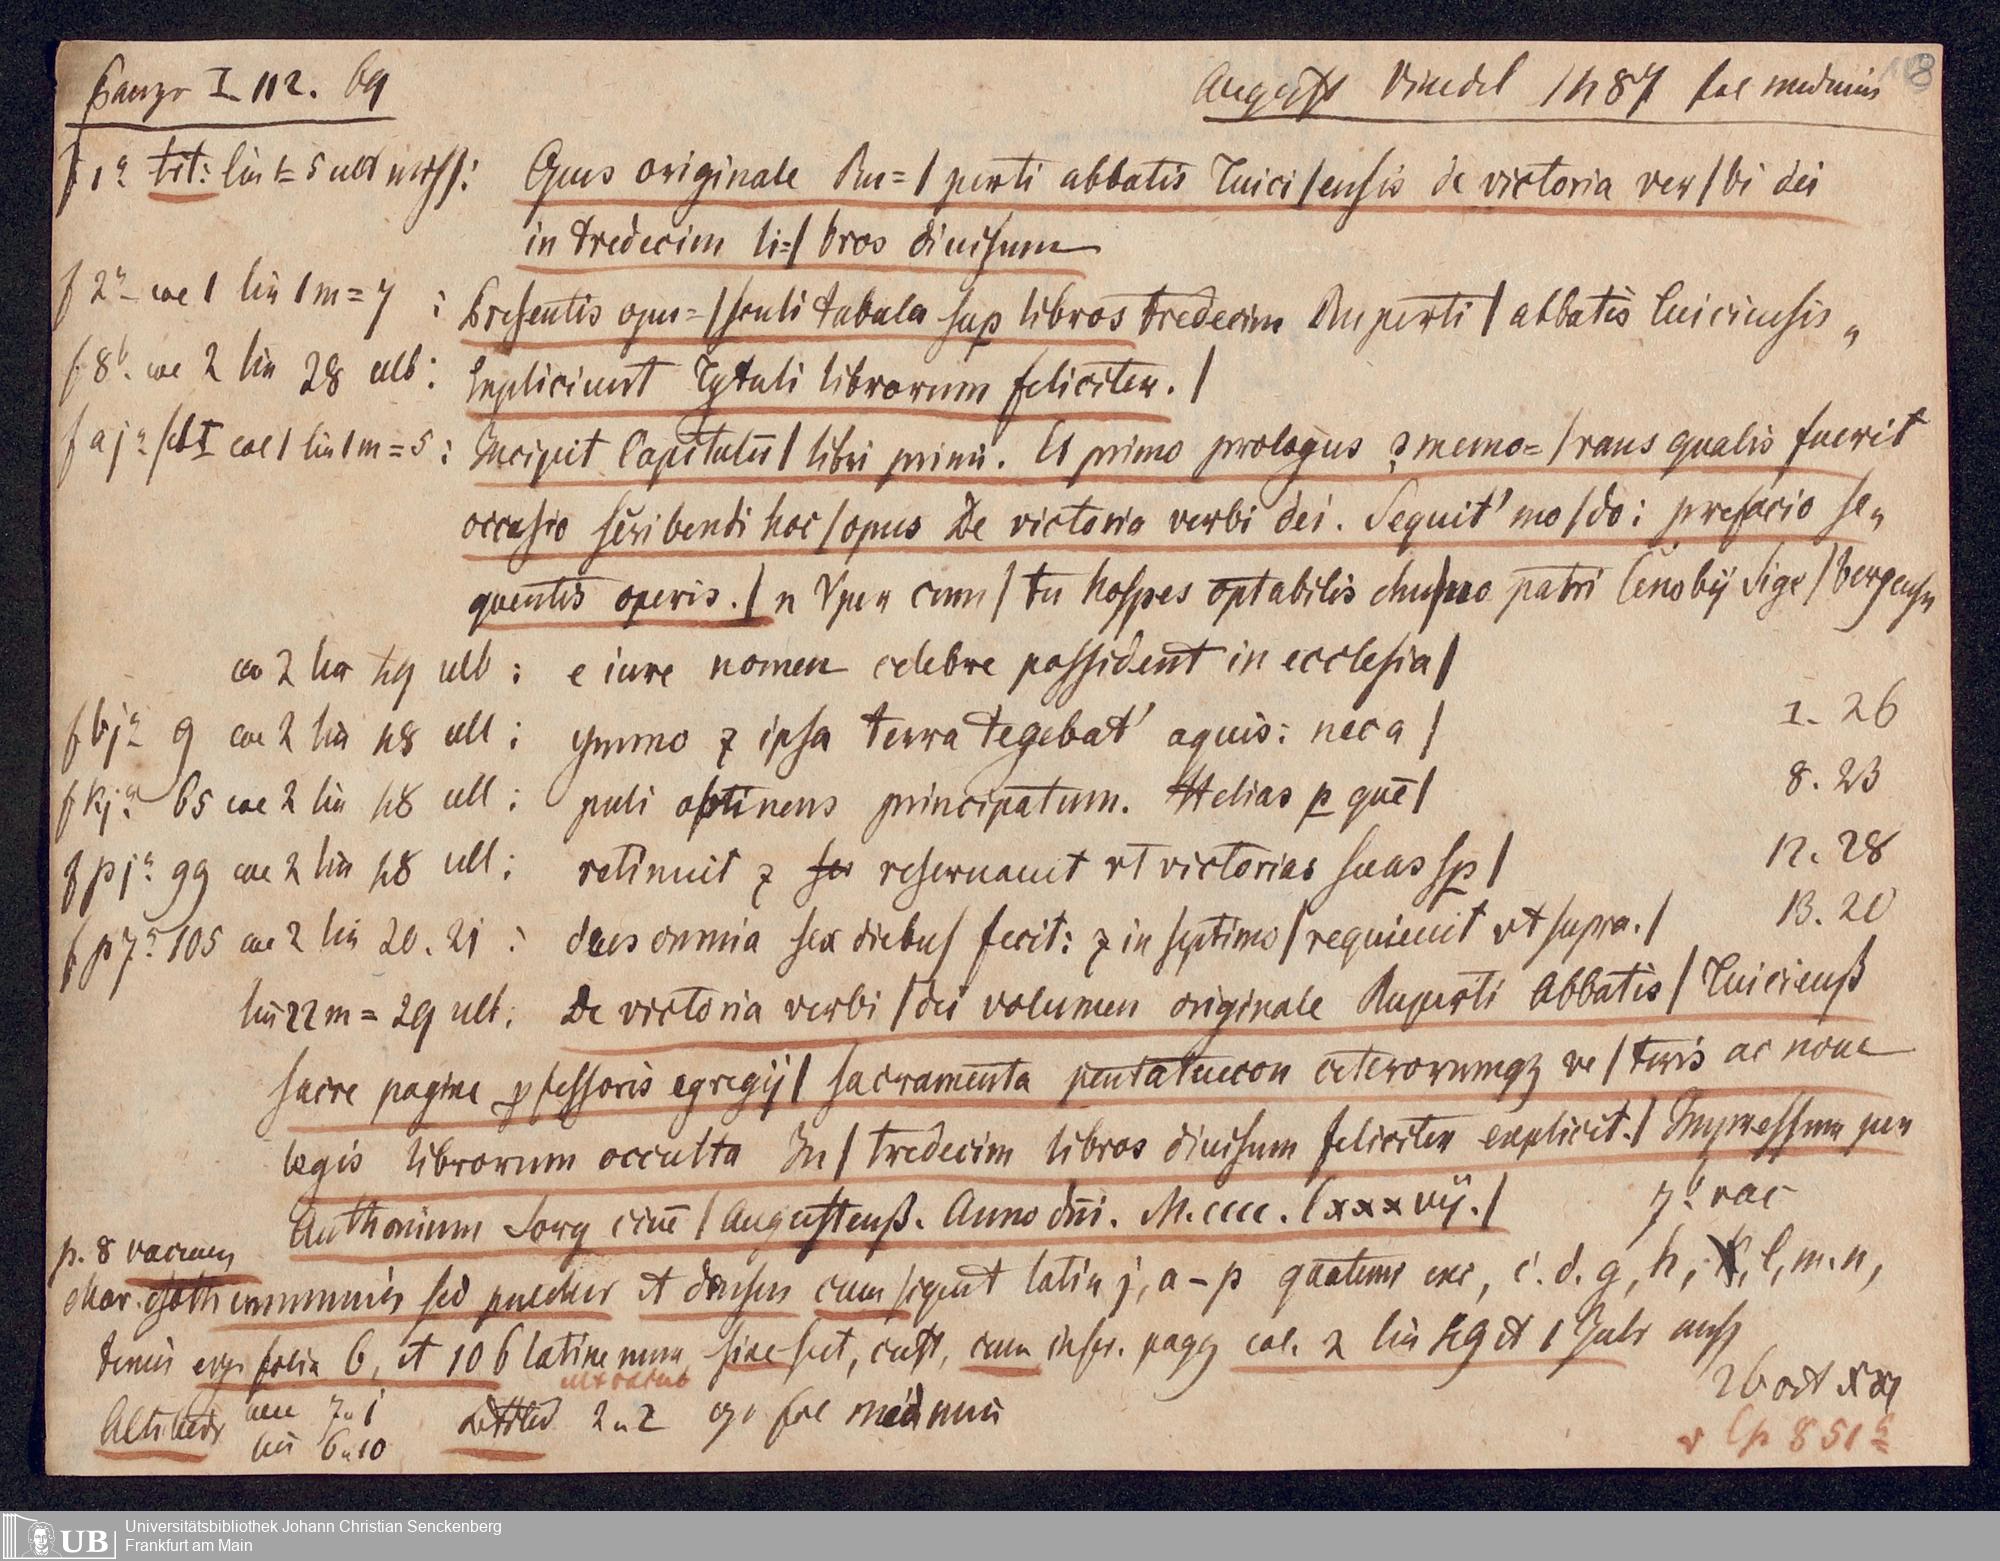 Panzer I 112. 69
August Vindel 1487 fol medium 8
f 1ª tit: lin 1=5 ult miss: Opus originale Ru=/perti abbatis Tuici/ensis de victoria ver/bi dei
in tredecim li=/bros diuisum
f 2ª col 1 lin 1 m=7 : Presentis opus=/sculi tabula sup libros tredecim Ruperti / abbatis Tuiciensis „
f 8b. col 2 lin 28 ult: Expliciunt Tytuli librorum feliciter. /
f aj ª fol I col 1 lin 1 m=5 : Incipit Capitulū / libri primi. Et primo prologus ꝯmemo=/rans qualis fuerit
occasio scribendi hoc / opus De victoria verbi dei. Sequit' mo/do: prefacio se„
quentis operis. / n Vper cum / tu hospes optabilis patri Cenobij Sige/bergensn
co 2 lin 49 ult : e iure nomen celebre possident in ecclesia /
f bjª 9 col 2 lin 48 ult : ymmo ⁊ ipsa terra tegebat' aquis: nec a / 1. 26
f kjª 65 col 2 lin 48 ult : puli optinens principatum. Helias p quē / 8. 23
f pjª 99 col 2 lin 48 ult : retinuit ⁊ reseruauit vt victorias suas sp / 12. 28
f p7ª 105 col 2 lin 20. 21 : deus omnia sex diebus fecit: ⁊ in septimo / requieuit vt supra. / 13. 20
lin 22 m=29 ult: De victoria verbi / dei volumen originale Ruperti Abbatis / Tuicienß
sacre pagine ꝓfessoris egregij / sacramenta pentateucon ceterorumqȝ ve/teris ac noue
legis librorum occulta In / tredecim libros diuisum feliciter explicit. / Impressum per
Anthonium Sorg ciuē / Augustenß. Anno dni. M. cccc. lxxxvij. / 7b vac
p. 8 vacuum
char. goth communis sed pulcher et densus cum signat latin j, a–p quatern exc, c. d. g, h, k, l, m. n,
folia 6, et 106 latine num, sine sect, cust, cum inscr. pagg col. 2 lin 49 et 1 miss
Alt 7 „ 1 2 „ 2 fol medium
lin 6 „ 10
26 oct
v Cp 851
Universitätsbibliothek Johann Christian Senckenberg
UB Frankfurt am Main